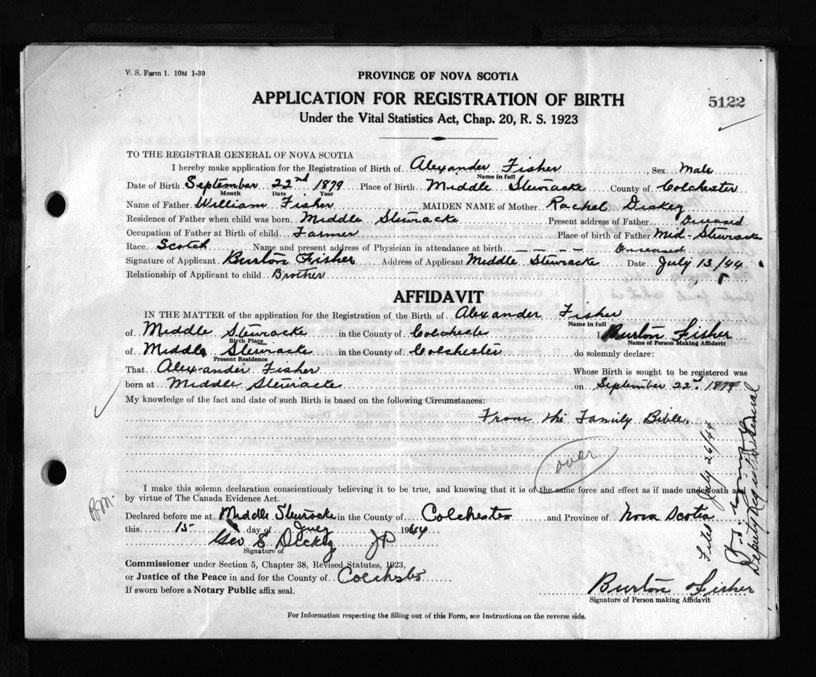 V. S. Form 1. 10M 1-39
PROVINCE OF NOVA SCOTIA
APPLICATION FOR REGISTRATION OF BIRTH
5122
Under the Vital Statistics Act, Chap. 20, R. S. 1923
TO THE REGISTRAR GENERAL OF NOVA SCOTIA
I hereby make application for the Registration of Birth of Alexander Fisher Sex Male
Name in full
Date of Birth September 22nd 1879 Place of Birth Middle Stewiacke County of Colchester
Month Date Year
Name of Father William Fisher MAIDEN NAME of Mother Rachel Dickey
Residence of Father when child was born Middle Stewiacke Present address of Father Deceased
Occupation of Father at Birth of child Farmer Place of birth of Father Mid-Stewiacke
Race Scotch Name and present address of Physician in attendance at birth ---- Deceased
Signature of Applicant Burton Fisher Address of Applicant Middle Stewiacke Date July 13/44
Relationship of Applicant to child Brother
AFFIDAVIT
IN THE MATTER of the application for the Registration of the Birth of Alexander Fisher
Name in full
of Middle Stewiacke in the County of Colchester I Burton Fisher
Birth Place Name of Person Making Affidavit
of Middle Stewiacke in the County of Colchester do solemnly declare:
Present Residence
That Alexander Fisher Whose Birth is sought to be registered was
born at Middle Stewiacke on September 22nd 1879
My knowledge of the fact and date of such Birth is based on the following Circumstances:
From the Family Bible
over
I make this solemn declaration conscientiously believing it to be true, and knowing that it is of the same force and effect as if made under oath and
by virtue of The Canada Evidence Act.
Declared before me at Middle Stewiacke in the County of Colchester and Province of Nova Scotia
this 15 day of July 1944
Geo S. Dickey JP
Signature of
Commissioner under Section 5, Chapter 38, Revised Statutes, 1923,
or Justice of the Peace in and for the County of Colchester
If sworn before a Notary Public affix seal.
Burton Fisher
Signature of Person making Affidavit
For Information respecting the filling out of this Form, see Instructions on the reverse side.
Filed July 26/44
Deputy Registrar General